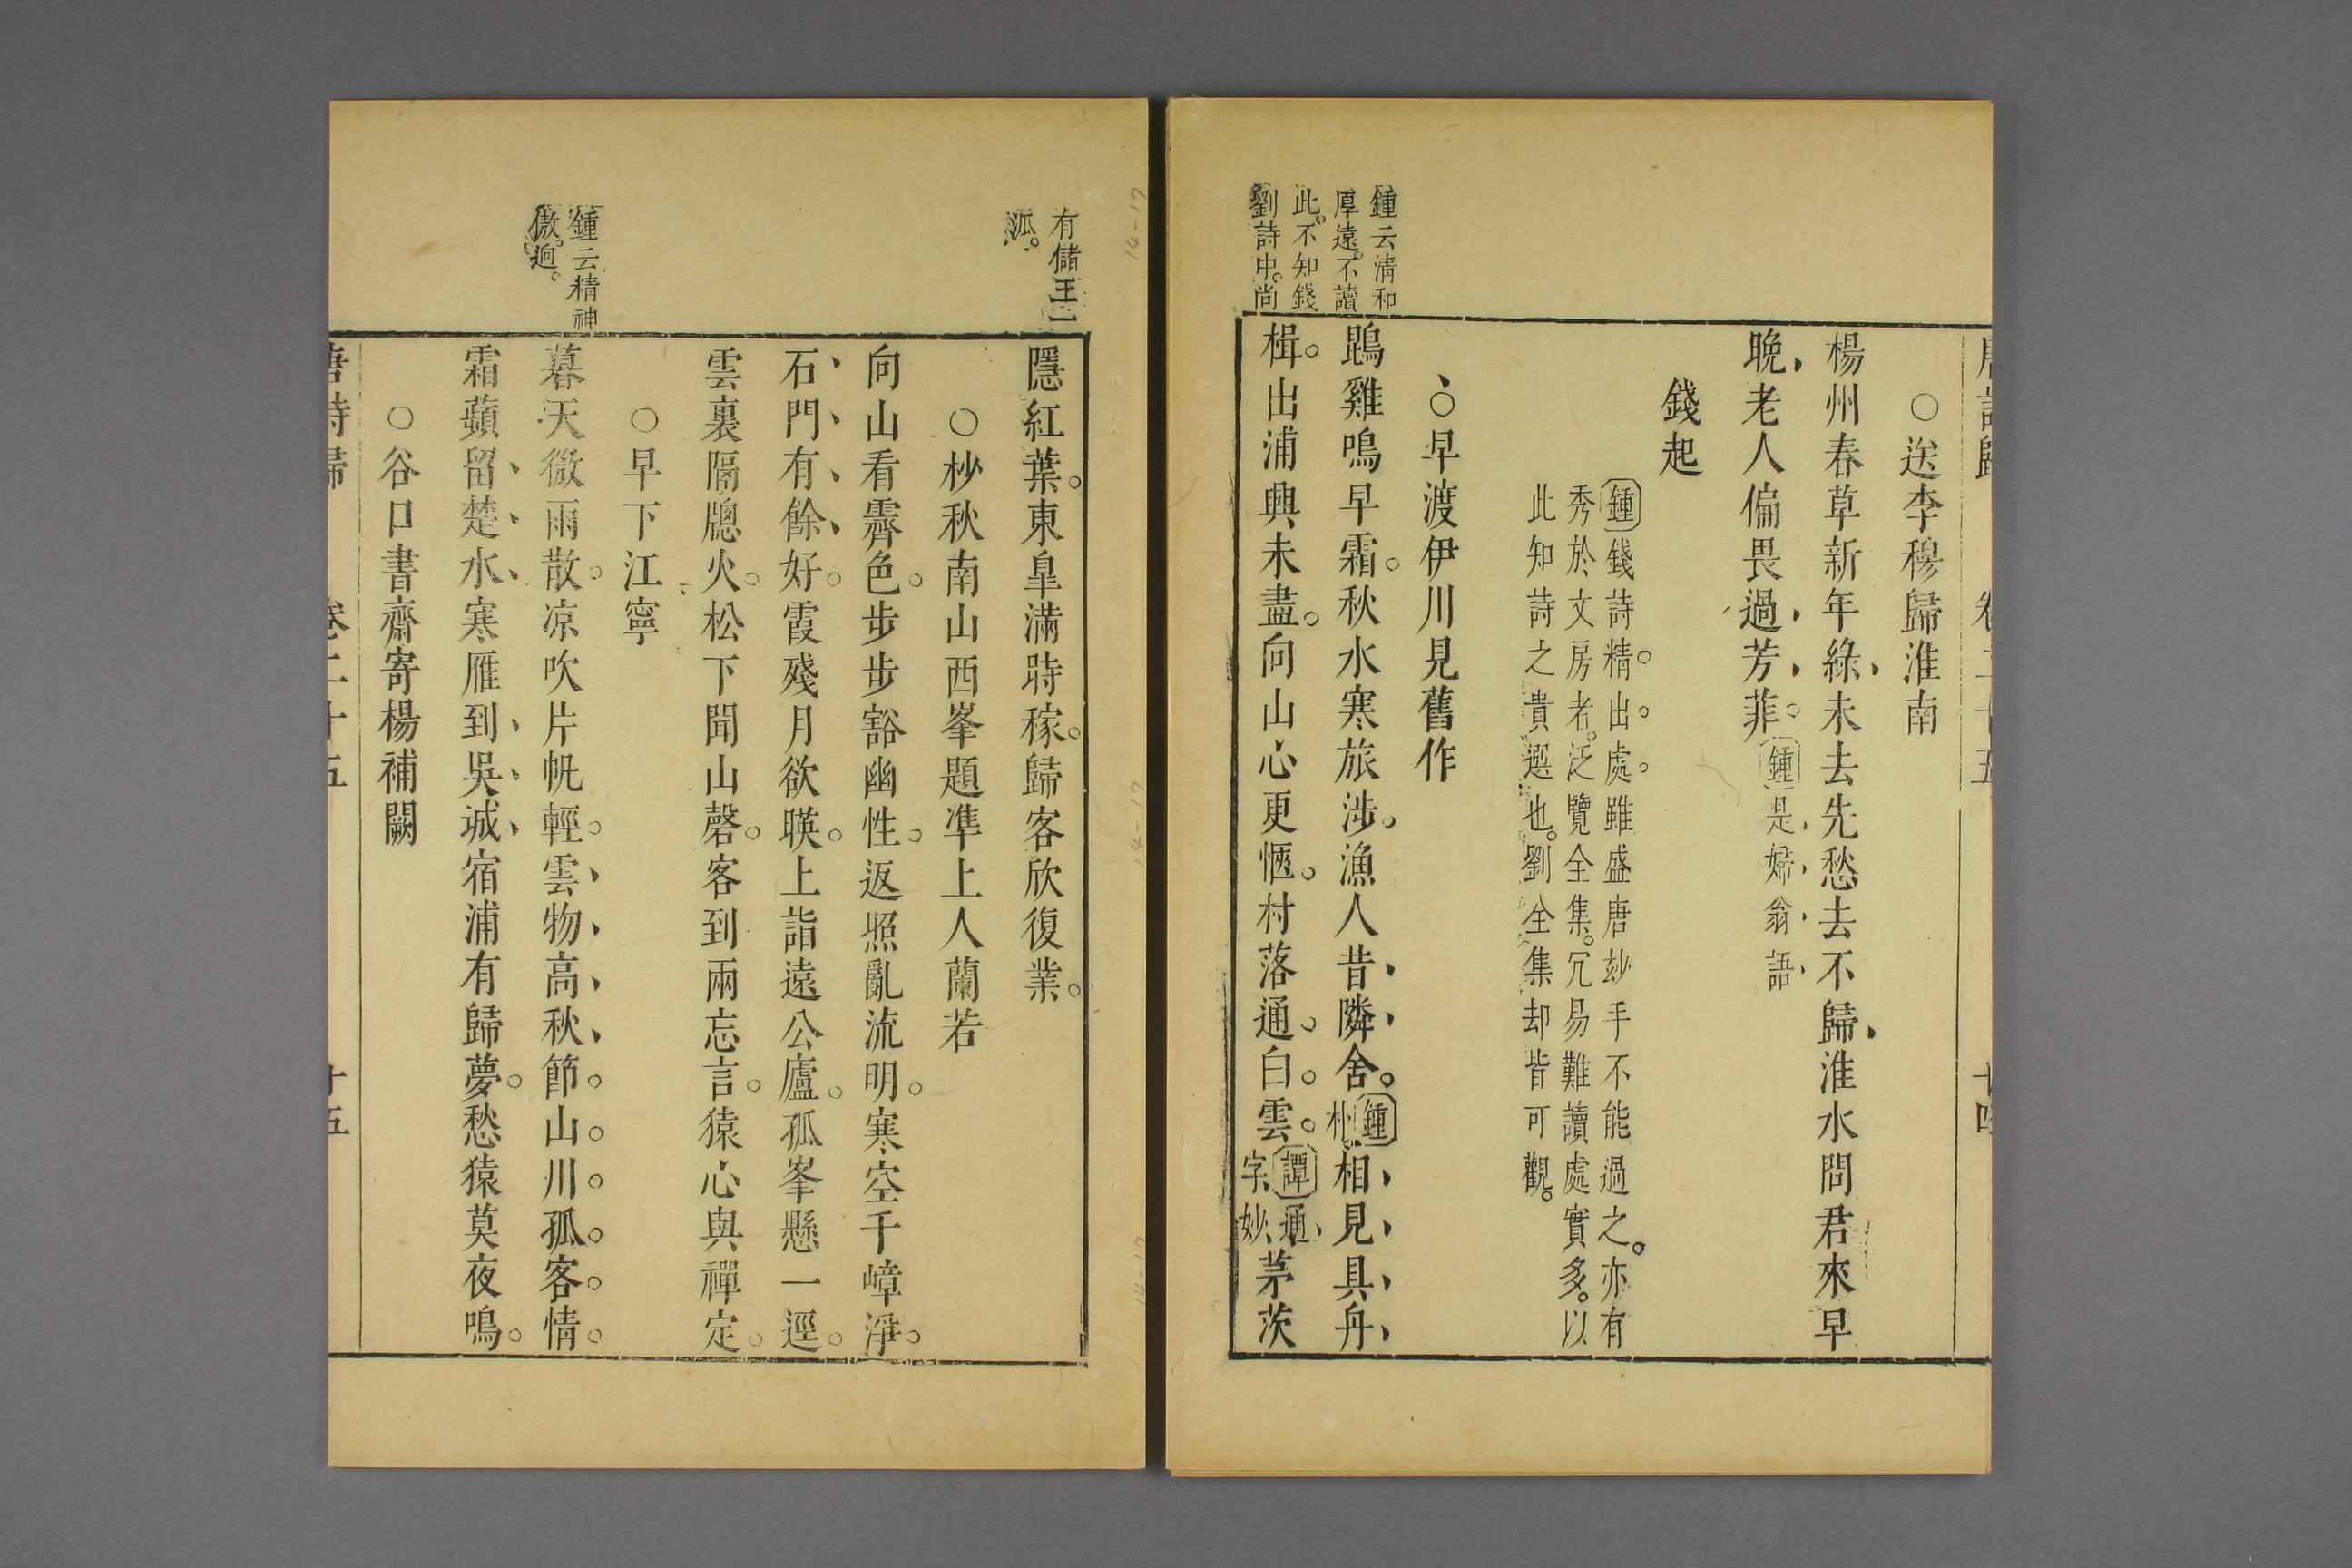 唐詩歸 卷二十五 十四
○送李穆歸淮南
楊州春草新年綠未去先愁去不歸淮水問君來早
晚老人偏畏過芳菲鍾是婦翁語
錢起
鍾錢詩精出處雖盛唐玅手不能過之亦有
秀於文房者泛覽全集冗易難讀處實多以
此知詩之貴選也劉全集却皆可觀
○早渡伊川見舊作
鵾雞鳴早霜秋水寒旅涉漁人昔隣舍鍾朴相見具舟
楫出浦興未盡向山心更愜村落通白雲譚通字妙茅茨
鍾云清和
厚遠不讀
此不知錢
劉詩中尚
有儲王一
派
隱紅葉東臯滿時稼歸客欣復業
○杪秋南山西峯題準上人蘭若
向山看霽色步步豁幽性返照亂流明寒空千嶂淨
石門有餘好霞殘月欲暎上詣遠公廬孤峯懸一逕
雲裏隔牕火松下聞山磬客到兩忘言猿心與禪定
○早下江寧
暮天微雨散凉吹片帆輕雲物高秋節山川孤客情
霜蘋留楚水寒雁到吳城宿浦有歸夢愁猿莫夜鳴
鍾云精神
傲逈
○谷口書齋寄楊補闕
唐詩歸 卷二十五 十五